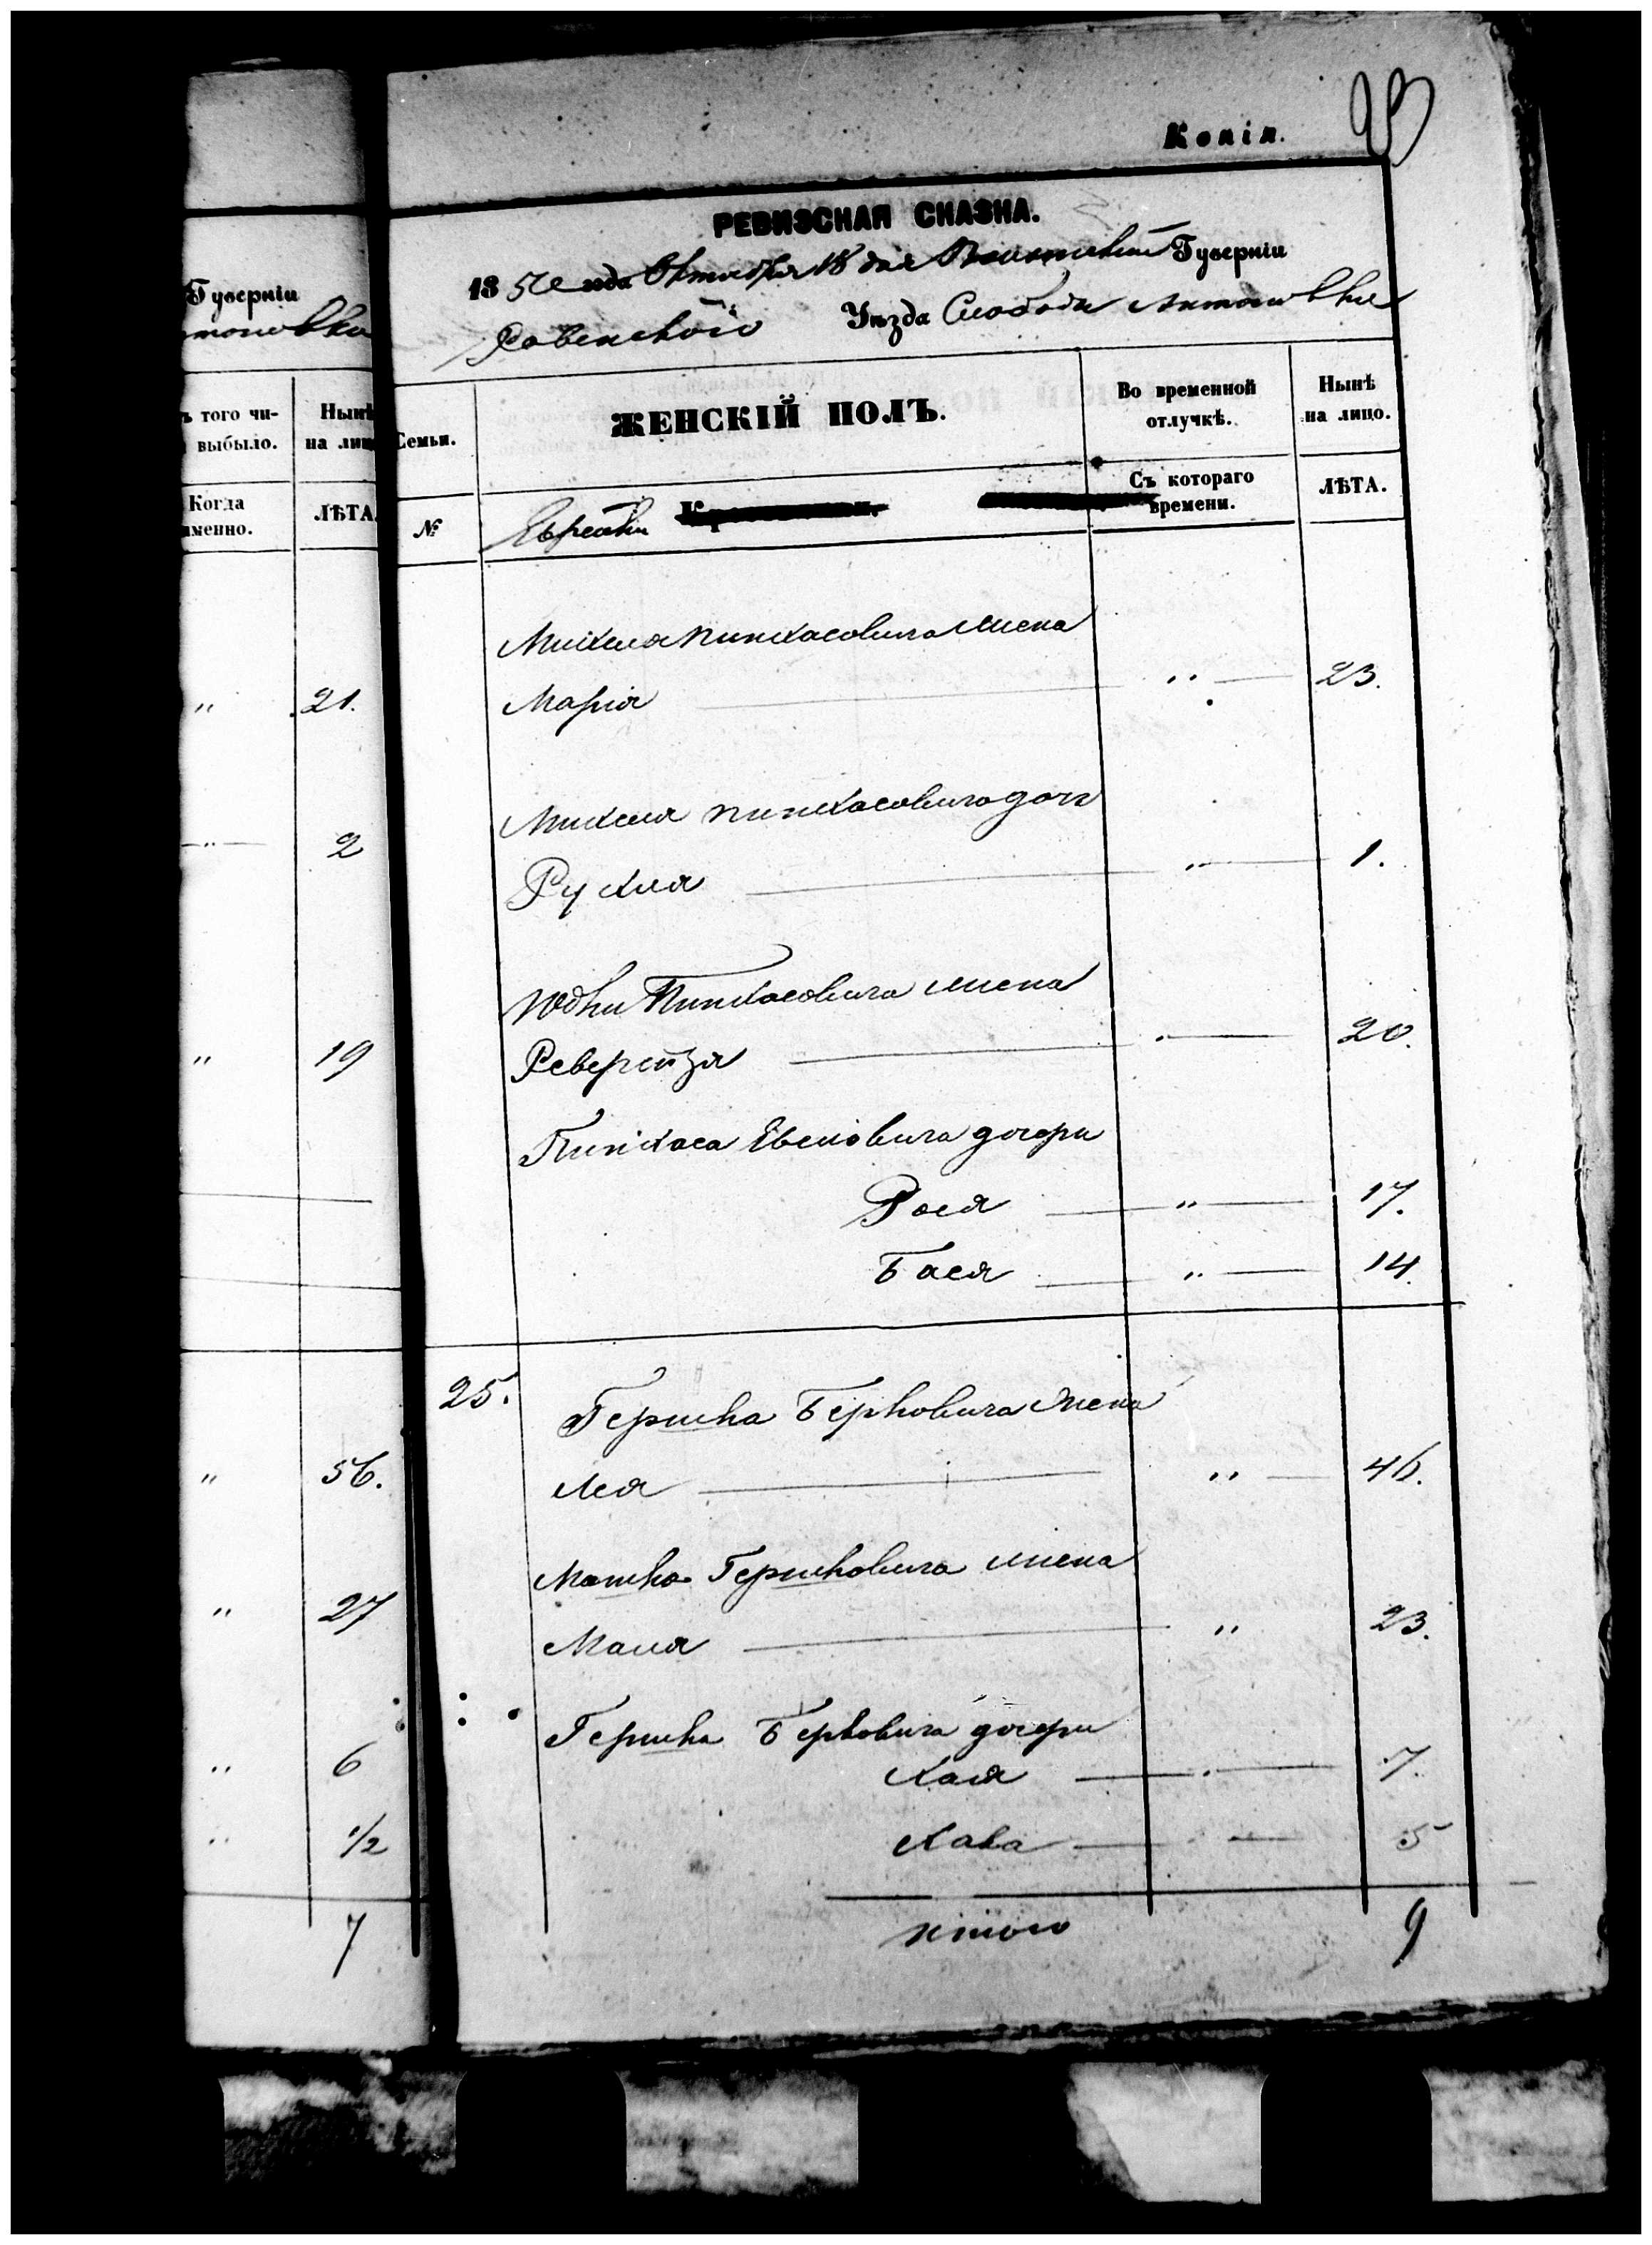 Копія.
РЕВИЗСКАЯ СКАЗКА.
18 года Октября 18 дня Волынской Губерніи
Ровенского Уѣзда Слободы Антоновки
Губерніи
ъ того чи-
выбыло.
Нынѣ
на лицо
Когда
именно.
ЛѢТА.
Семьи.
ЖЕНСКІЙ ПОЛЪ.
Во временной
отлучкѣ.
Нынѣ
на лицо.
№
Еврейки
Съ котораго
времени.
ЛѢТА.
Михеля Пинхасовича жена
" 21. Марія " 23.
Михеля Пинхасовича дочь
" 2 Рухля " 1.
Юдки Пинхасовича жена
" 19 20.
Пинхаса дочери
Рося " 17.
Бася " 14.
25. Гершка Берковича жена
" 56. Лея " 46.
Мошка Гершковича жена
" 27 Маля " 23.
Гершка Берковича дочери
" 6 Хая 7.
" 1/2 Хава 5
7 итого 9